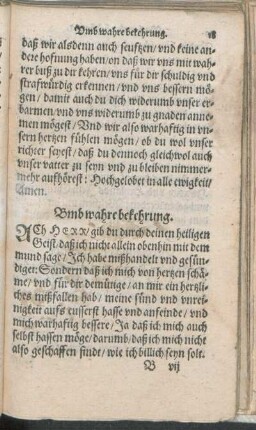 Vmb wahre bekehrung. 18
daß wir alsdenn auch seufftzen/ vnd keine an-
dere hofnung haben/ on daß wir vns mit wah-
rer buß zu dir kehren/ vns für dir schuldig vnd
strafwürdig erkennen/ vnd vns bessern mö-
gen/ damit auch du dich widerumb vnser er-
barmen/ vnd vns widerumb zu gnaden anne-
men mögest/ Vnd wir also warhaftig in vn-
sern hertzen fühlen mögen/ ob du wol vnser
richter seyest/ daß du dennoch gleichwol auch
vnser vatter zu seyn vnd zu bleiben nimmer-
mehr aufhörest: Hochgelobet in alle ewigkeit/
Amen.
Vmb wahre bekehrung.
ACh HERR/ gib du durch deinen heiligen
Geist/ daß ich nicht allein obenhin mit dem
mund sage/ Ich habe mißhandelt vnd gesün-
diget: Sondern daß ich mich von hertzen schä-
me/ vnd für dir demütige/ an mir ein hertzli-
ches mißfallen hab/ meine sünd vnd vnrei-
nigkeit aufs eusserst hasse vnd anfeinde/ vnd
mich warhaftig bessere/ Ja daß ich mich auch
selbst hassen möge/ darumb/ daß ich mich nicht
also geschaffen findt/ wie ich billich seyn solt.
B vij